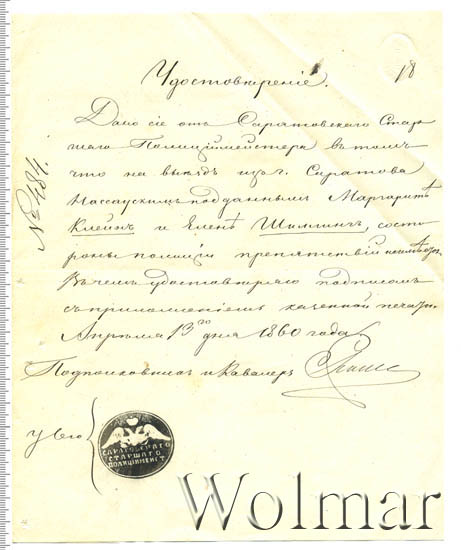 18
Удостовѣреніе.
№ 484.
Дано сіе отъ Саратовскаго Стар-
шаго Полиціймейстера въ томъ
что на выѣздъ изъ г. Саратова
Нассаускимъ подданнымъ Маргаритѣ
Клейнъ и Еленѣ Шимгинъ, со сто-
роны полиціи препятствій неимѣется.
Въ чемъ удостовѣряю подписомъ
съ приложеніемъ казенной печати.
Апрѣля 13го дня 1860 года.
Подполковникъ и Кавалеръ
у сего
САРАТОВСКАГО
СТАРШАГО
ПОЛИЦІЙМЕЙСТ
Wolmar